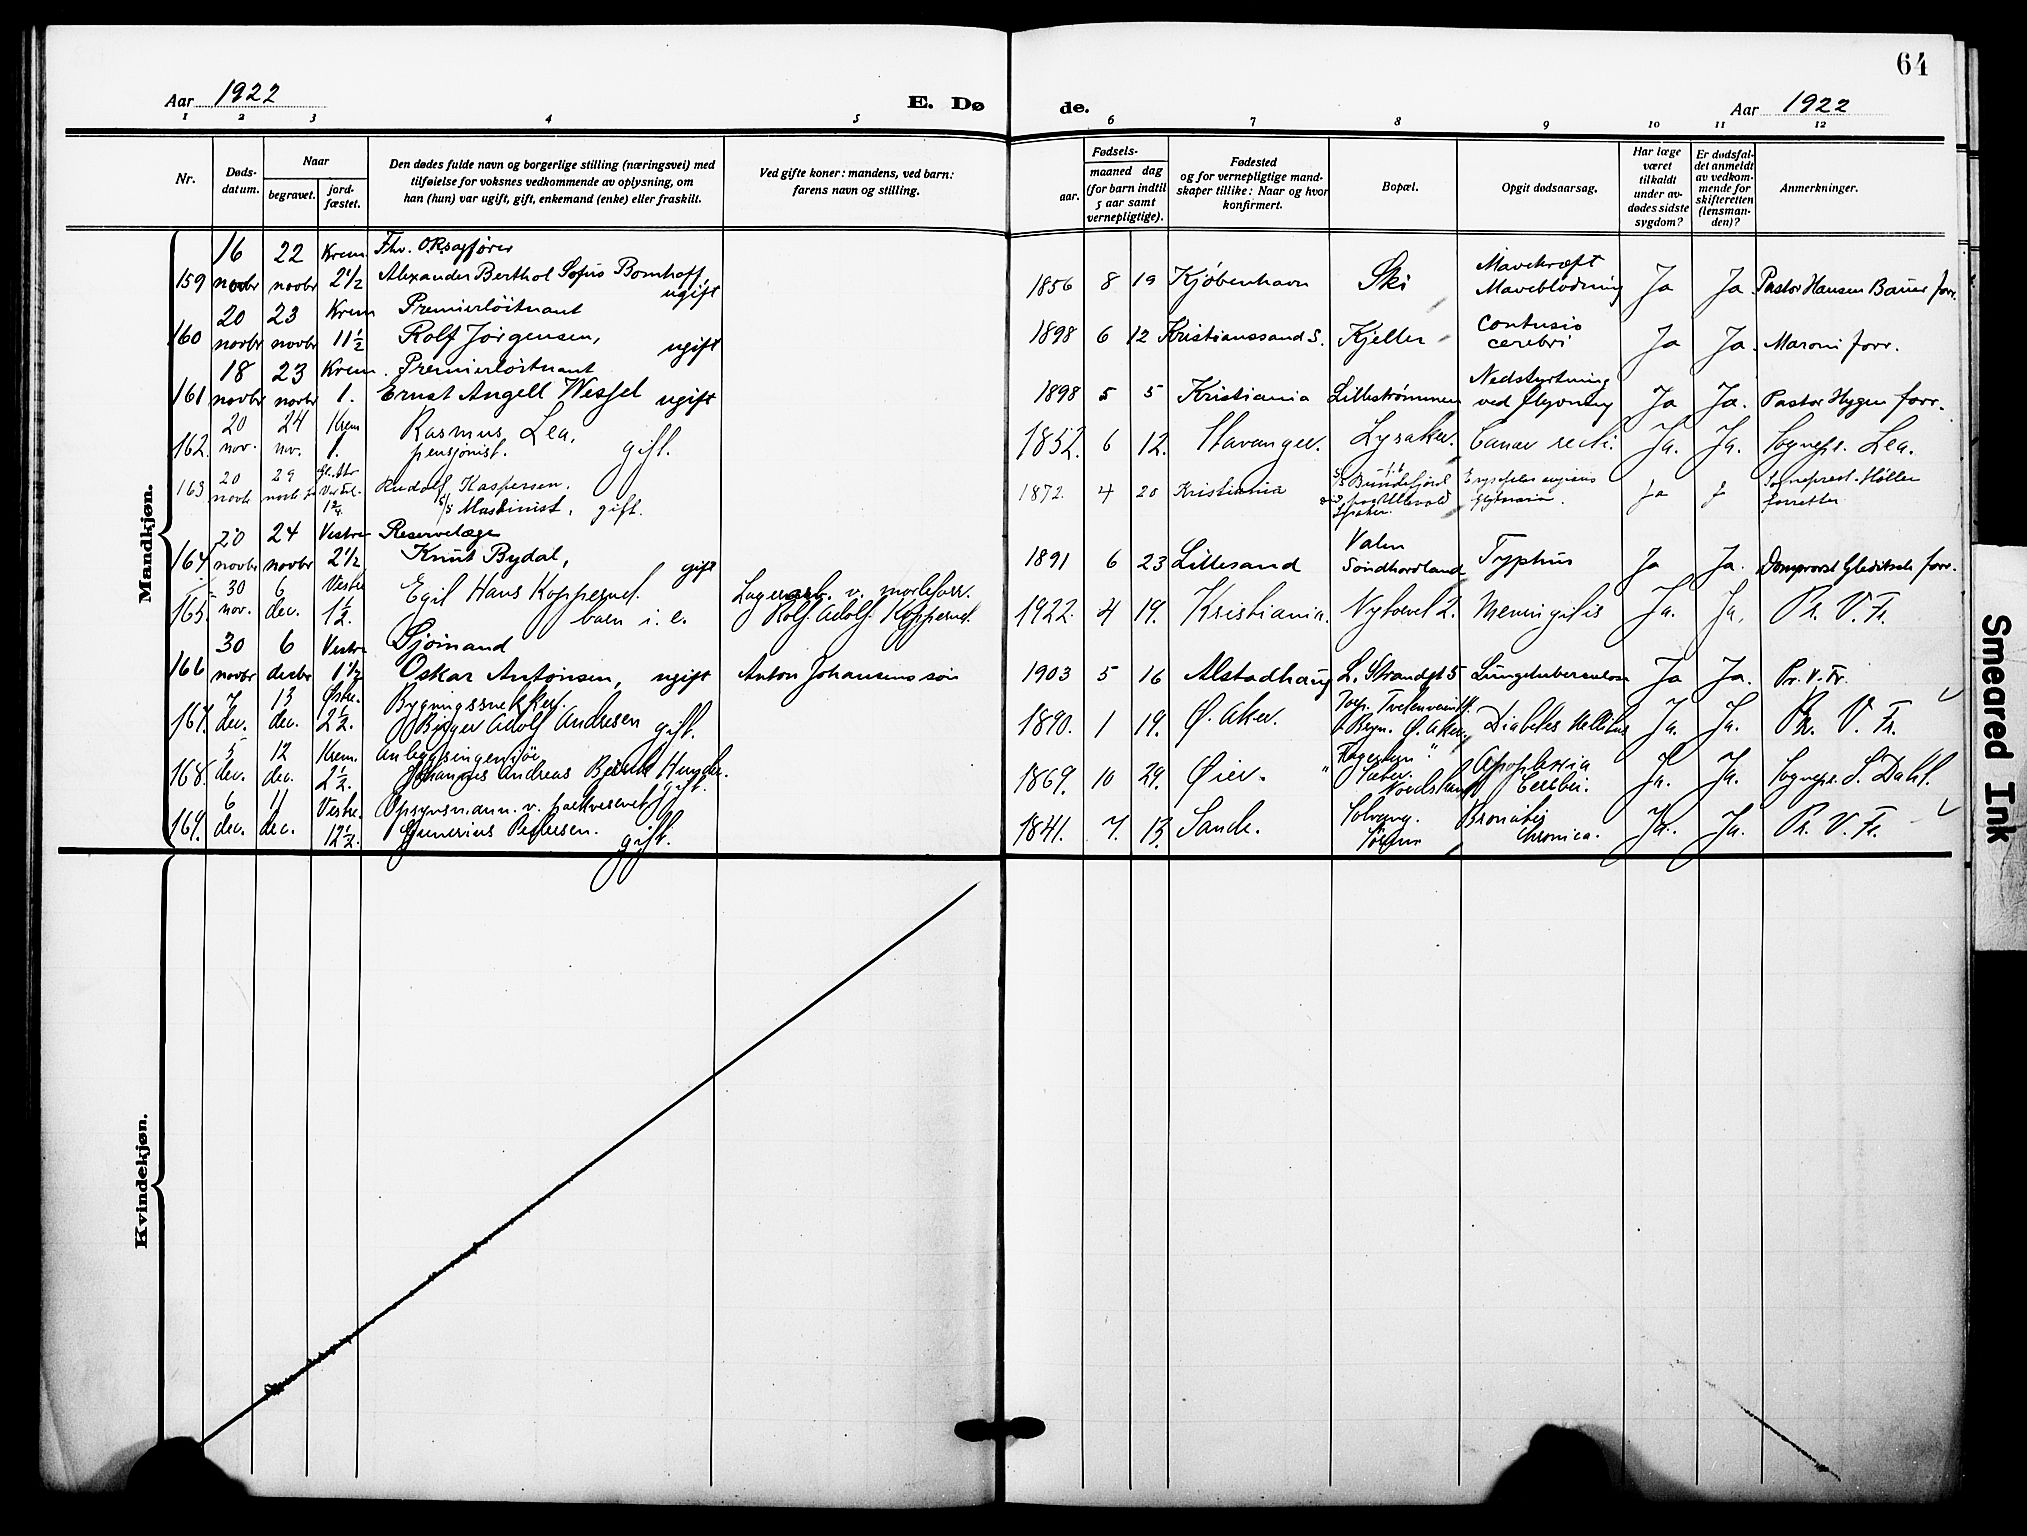 64
Aar 1922
E. Dø
de.
Aar 1922
1 2 3 4 5 6 7 8 9 10 11 12
Nr.
Døds-
datum.
Naar
begravet.
jord-
fæstet.
Den dødes fulde navn og borgerlige stilling (næringsvei) med
tilføielse for voksnes vedkommende av oplysning, om
han (hun) var ugift, gift, enkemand (enke) eller fraskilt.
Ved gifte koner: mandens, ved barn:
farens navn og stilling.
Fødsels-
aar.
maaned dag
(for barn indtil
5 aar samt
vernepligtige).
Fødested
og for vernepligtige mand-
skaper tillike: Naar og hvor
konfirmert.
Bopæl.
Opgit dødsaarsag.
Har læge
været
tilkaldt
under av-
dødes sidste
sygdom?
Er dødsfal-
det anmeldt
av vedkom-
mende for
skifteretten
(lensman-
den)?
Anmerkninger.
Mandkjøn.
16 22 Krem Fhv. O.R.sagfører
159 novbr novbr 2 1/2 Alexander Berthol Sofus Bomhoff, ugift 1856 8 19 Kjøbenhavn Ski Mavekræft Maveblødning Ja Ja Pastor Hansen Bauer forr.
20 23 Krem Premierløitnant
160 novbr novbr 11 1/2 Rolf Jørgensen, ugift 1898 6 12 Kristianssand S. Kjeller Contusio cerebri Ja Ja. Maroni forr.
18 23 Krem. Premierløitnant
161 novbr novbr 1. Ernst Angell Wessel ugift 1898 5 5 Kristiania Lillestrømmen Nedstyrtning ved flyvning Ja Ja. Pastor Hygen forr.
20 24 Krem Rasmus Lea,
162. nov. nov. 1. pensjonist. gift. 1852. 6 12. Stavanger. Lysaker. Cancer recti. Ja. Ja. Sognepr. Lea.
20 29 Rudolf Kaspersen.
163 novbr novbr Maskinist, gift. 1872. 4 20 Kristiania S/S Bundefjord Ja J Sogneprest Møller forretter
20 24 Vestre Reservelæge
164 novbr novbr 2 1/2 Knut Bydal, gift 1891 6 23 Lillesand Valen Söndhordland Typhus Ja Ja. Domprovst Gleditsch forr.
30 6 Vestre Egil Hans Koppernd. Lagerarb. v. morleforr.
165. nov. dec. 1 1/2. barn i. e. Rolf Adolf Koppernd. 1922. 4 19. Kristiania. Nytorvet 2. Meningitis Ja. Ja, Pr. V. Fr.
30 6 Vestre Sjømand
166 novbr decbr 1 1/2 Oskar Antonsen, ugift Anton Johansens søn 1903 5 16 Alstadhaug L. Strandgt 5 Lungetuberculose Ja Ja. Pr. V. Fr.
7 13 Østre. Bygningssnekker.
167. dec. dec. 2 1/2. Birger Adolf Andresen gift. 1890. 1 19. Ø. Aker. Ø. Aker. Diabetes Mellitus Ja. Ja. Pr. V. Fr.
5 12 Krem. Anleggsingeniør
168. dec. dec. 2 1/2. Johannes Andreas gift. 1869. 10 29. Øier. Apoplexia Cerebri. Ja. Ja. Sognepr. S. Dahl.
6 11 Vestre. Opsynsmann. v. parkvesenet
169. dec. dec. 12 1/2. Gunerius Pettersen. gift. 1841. 7. 13. Sande. Solvang. Bronchitis chronica. Ja. Ja. Pr. V. Fr.
Kvindekjøn.
Smeared Ink